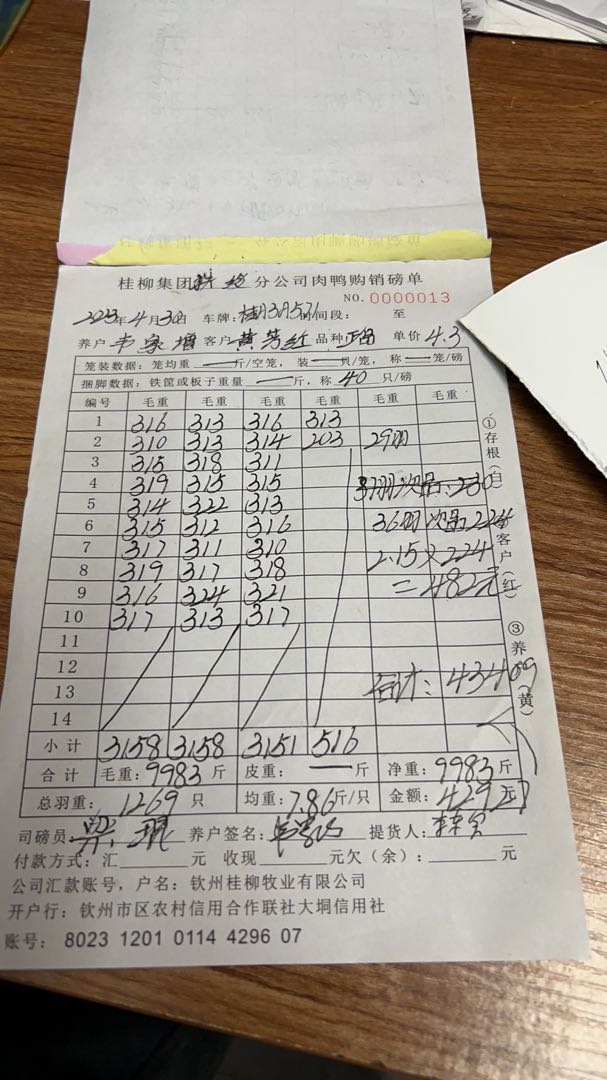 桂柳集团 分公司肉鸭购销磅单
NO. 0000013
2023年4月30日 车牌: 时间段: 至
养户 韦家增 客户 黄 红 品种 正品 单价 4.3
笼装数据:笼均重 — 斤/空笼,装 — 只/笼,称 — 笼/磅
捆脚数据:铁筐或板子重量 — 斤,称 40 只/磅
编号 毛重 毛重 毛重 毛重 毛重 毛重
1 316 313 316 313
2 310 313 314 203 29羽
3 315 318 311
4 319 315 315 37羽次品:230
5 314 322 313
6 315 312 316 36羽次品224
7 317 311 310 2.15×224
8 319 317 318
9 316 324 321 =482元
10 317 313 317
11
12
13 合计:43409
14
小计 3158 3158 3151 516
合计 毛重:9983斤 皮重: — 斤 净重:9983斤
总羽重: 1269 只 均重:7.86斤/只 金额:42927
司磅员: 养户签名: 提货人:
付款方式:汇 元 收现 元欠(余): 元
公司汇款账号,户名:钦州桂柳牧业有限公司
开户行:钦州市区农村信用合作联社大垌信用社
账号: 8023 1201 0114 4296 07
①存根(白) 客户(红) ③养 (黄)